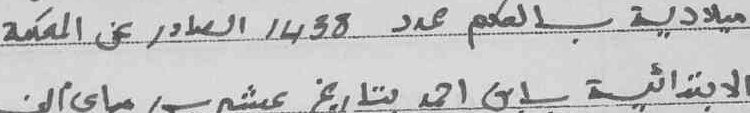 ميلادية بالحكم عدد 1438 الصادر عن المحكمة
الابتدائية بابن احمد بتاريخ عشرين ماي ألف